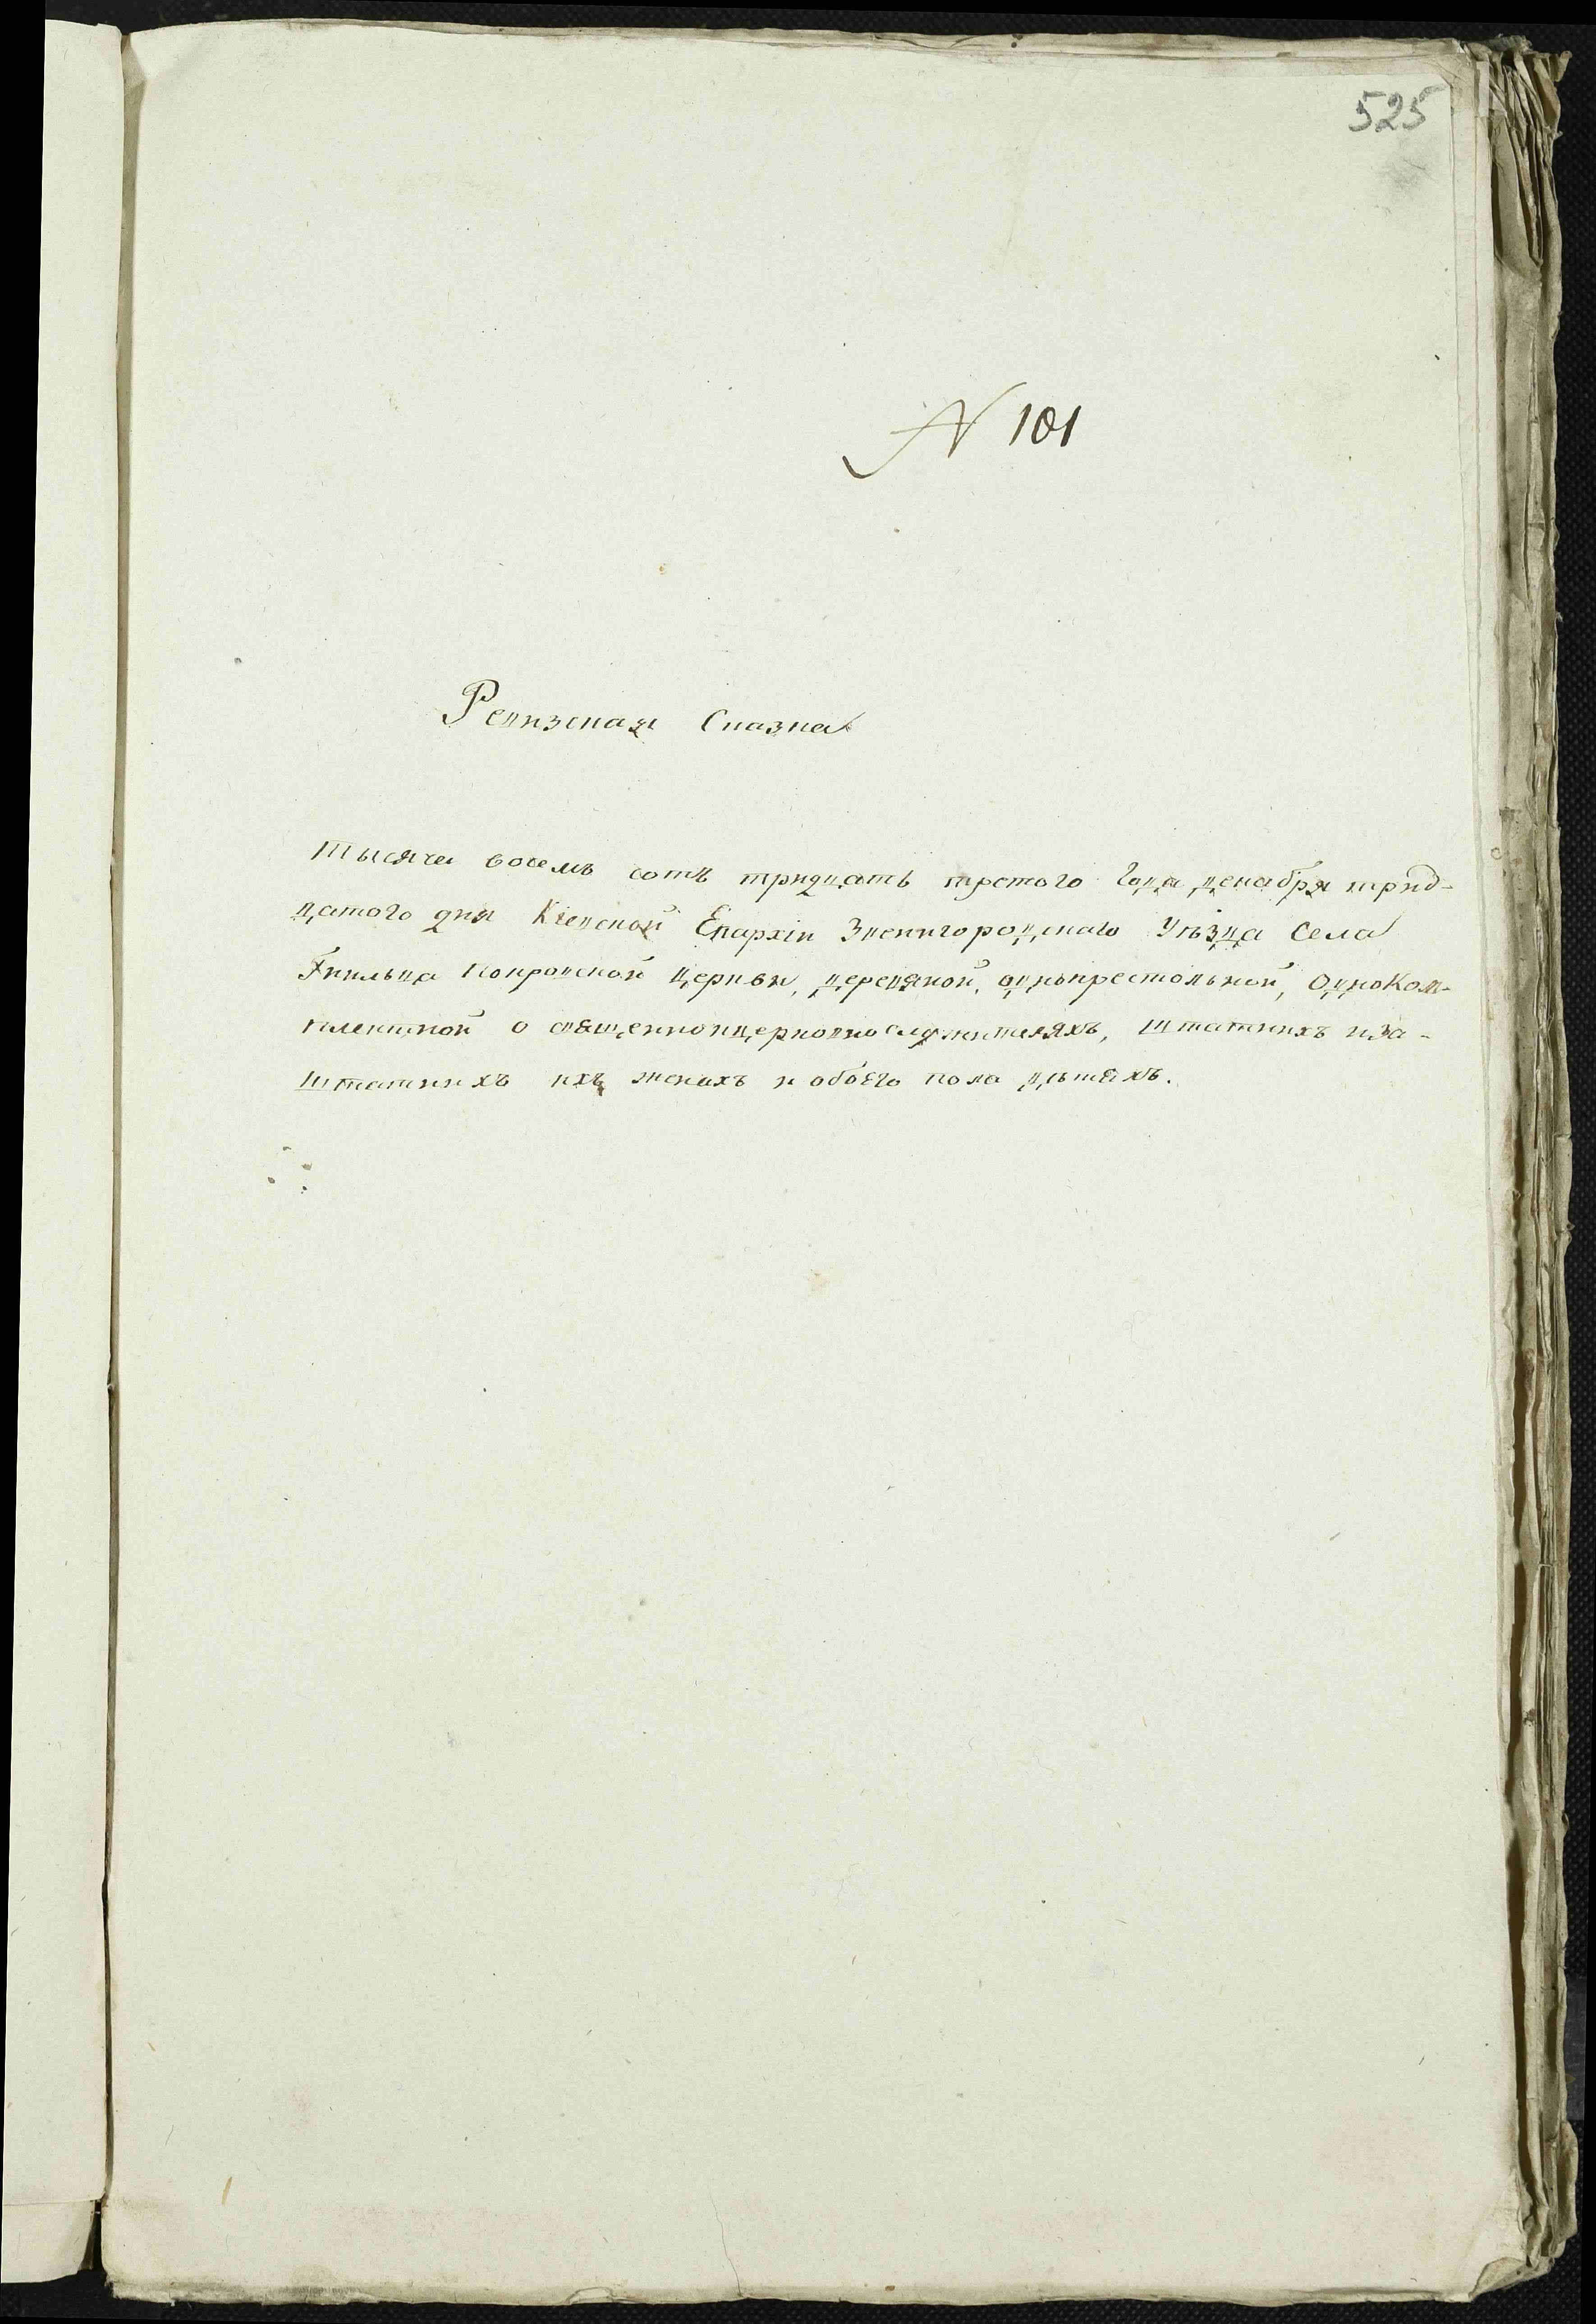 525
N 101
Ревизская Сказка
Тысяча восемь сотъ тридцать третого года декабря трид-
цатого дня Кіевской Епархіи Звенигородскаго Уѣзда Села
Гнильца Покровской церкви, деревяной, однопрестольной, одноком-
плектной о священноицерковнослужителяхъ, штатныхъ иза-
штатныхъ ихъ женахъ и обоего пола дѣтяхъ.